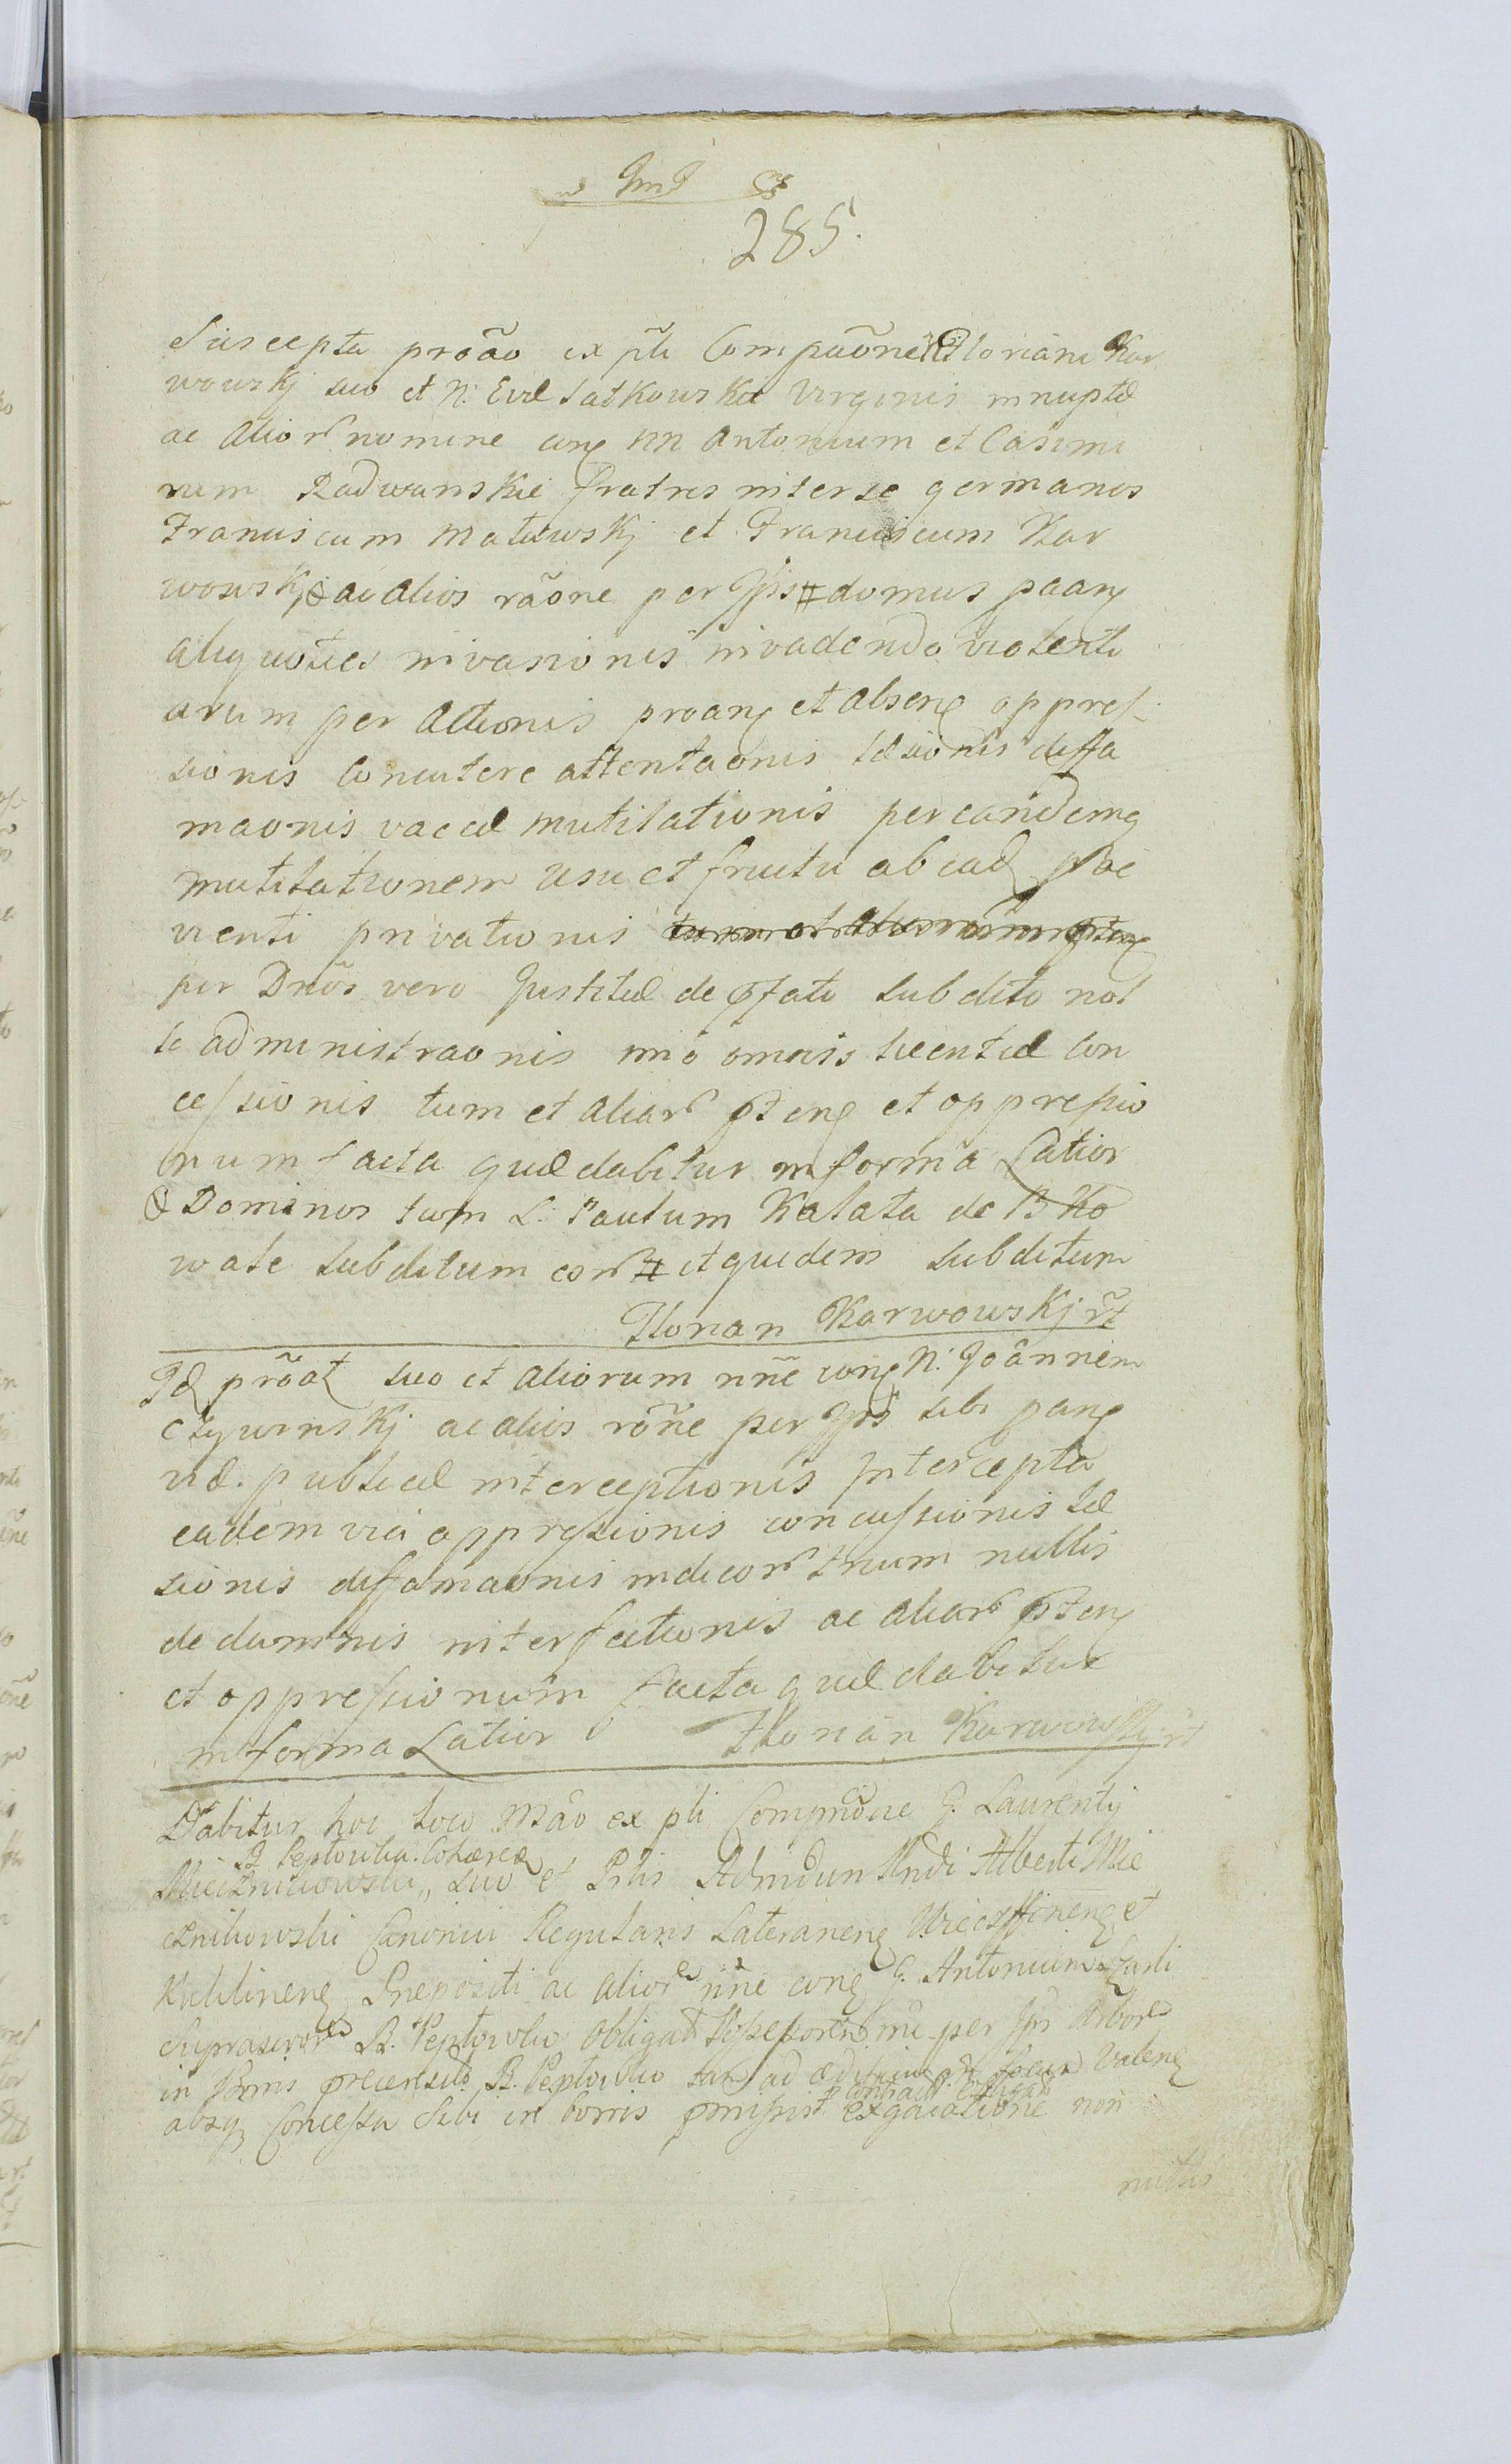 285.
Suscepta proāo ex pli Compaōne N Floriani Kar
wowskj suo et N: Evæ Satkowskie Virginis innuptæ
ac alior nomine con NN Antonium et Casimi
rum Radwanskie fratres inter se germanos
Franciscum Matuwskj et Franciscum Kar
wowskj & ac alios rāone per Ipsos # domus paan
aliquoties invasionis invadendo violenti
arum per actionis proan et absen oppres
sionis concutere attentaonis læsionis diffa
maonis vaccæ mutilationis per eandemq
mutilationem usu et fructu ab ead
vienti privationis
per Dnōs vero Justitiæ de pfato subdito nol
le administraonis imo omnis licentiæ con
cessionis tum et aliar pten et oppressio
num facta quæ dabitur in forma Latior
& Dominos tum L: Paulum Kalata de B Ko
wale subditum eor # et quidem subditum
Florian Karwowskj rt
Id prōat suo et aliorum nne con N: Joannem
Czywinskj ac alios rōne per Ipsos sibi pan
viæ publicæ interceptionis intercepta
eadem via oppressionis concussionis læ
sionis diffamaonis indicor trium nullis
de damnis interfectionis ac aliar pten
et oppressionum facta quæ dabitur
in forma Latior Florian Karwowskj rt
Dabitur hoc loco Māo ex pli Compaōne G. Laurentij
B. Peptowka. Cohæred
Miecznikowski,, suo et Plis Admdum Rndi Alberti Mie
cznikowski Canonici Regularis Lateranen et
Præpositi ac alior nne con G. Antonium
Suprascr B. Peptowko obligat per Ipsos Arbor
in bonis præcensit B. Peptowko ad ædificium focum valen
absq Concessa Sibi in bonis pmissis non
nullis